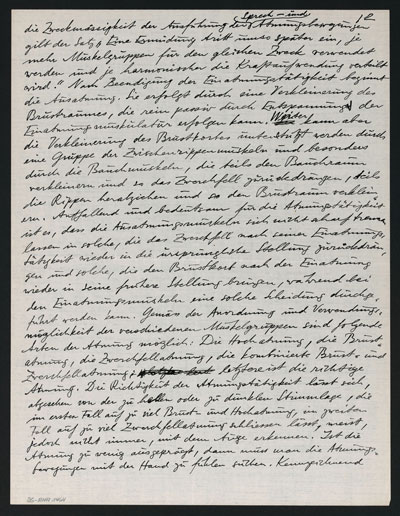 Sprech- und 12
die Zweckmässigkeit der Ausführung der Atmungsbewegungen
gilt der Satz: Eine Ermüdung tritt umso später ein, je
mehr Muskelgruppen für den gleichen Zweck verwendet
werden und je harmonischer die Kraftaufwendung verteilt
wird." Nach Beendigung der Einatmungstätigkeit beginnt
die Ausatmung. Sie erfolgt durch eine Verkleinerung des
Brustraumes, die rein passiv durch Entspannung der
Einatmungsmuskulatur erfolgen kann. Weiters kann aber
die Verkleinerung des Brustkorbes unterstützt werden durch
eine Gruppe der Zwischenrippenmuskeln und besonders
durch die Bauchmuskeln, die teils den Bauchraum
verkleinern und so das Zwerchfell zurückdrängen, teils
die Rippen herabziehen und so den Brustraum verklein
ern. Auffallend und bedeutsam für die Atmungstätigkeit
ist es, dass die Ausatmungsmuskeln sich nicht scharf trennen
lassen in solche, die das Zwerchfell nach seiner Einatmungs-
tätigkeit wieder in die ursprüngliche Stellung zurückdrän-
gen und solche, die den Brustkorb nach der Einatmung
wieder in seine frühere Stellung bringen, während bei
den Einatmungsmuskeln eine solche Scheidung durchge-
führt werden kann. Gemäss der Anordnung und Verwendungs-
möglichkeit der verschiedenen Muskelgruppen sind folgende
Arten der Atmung möglich: Die Hochatmung, die Brust-
atmung, die Zwerchfellatmung, die kombinierte Brust- und
Zwerchfellatmung; letztere ist die richtige
Atmung. Die Richtigkeit der Atmungstätigkeit lässt sich,
abgesehen von der zu hellen oder zu dunklen Stimmlage, die
im ersten Fall auf zu viel Brust- und Hochatmung, im zweiten
Fall auf zu viel Zwerchfellatmung schliessen lässt, meist,
jedoch nicht immer, mit dem Auge erkennen. Ist die
Atmung zu wenig ausgeprägt, dann muss man die Atmungs-
bewegungen mit der Hand zu fühlen suchen. Kennzeichnend